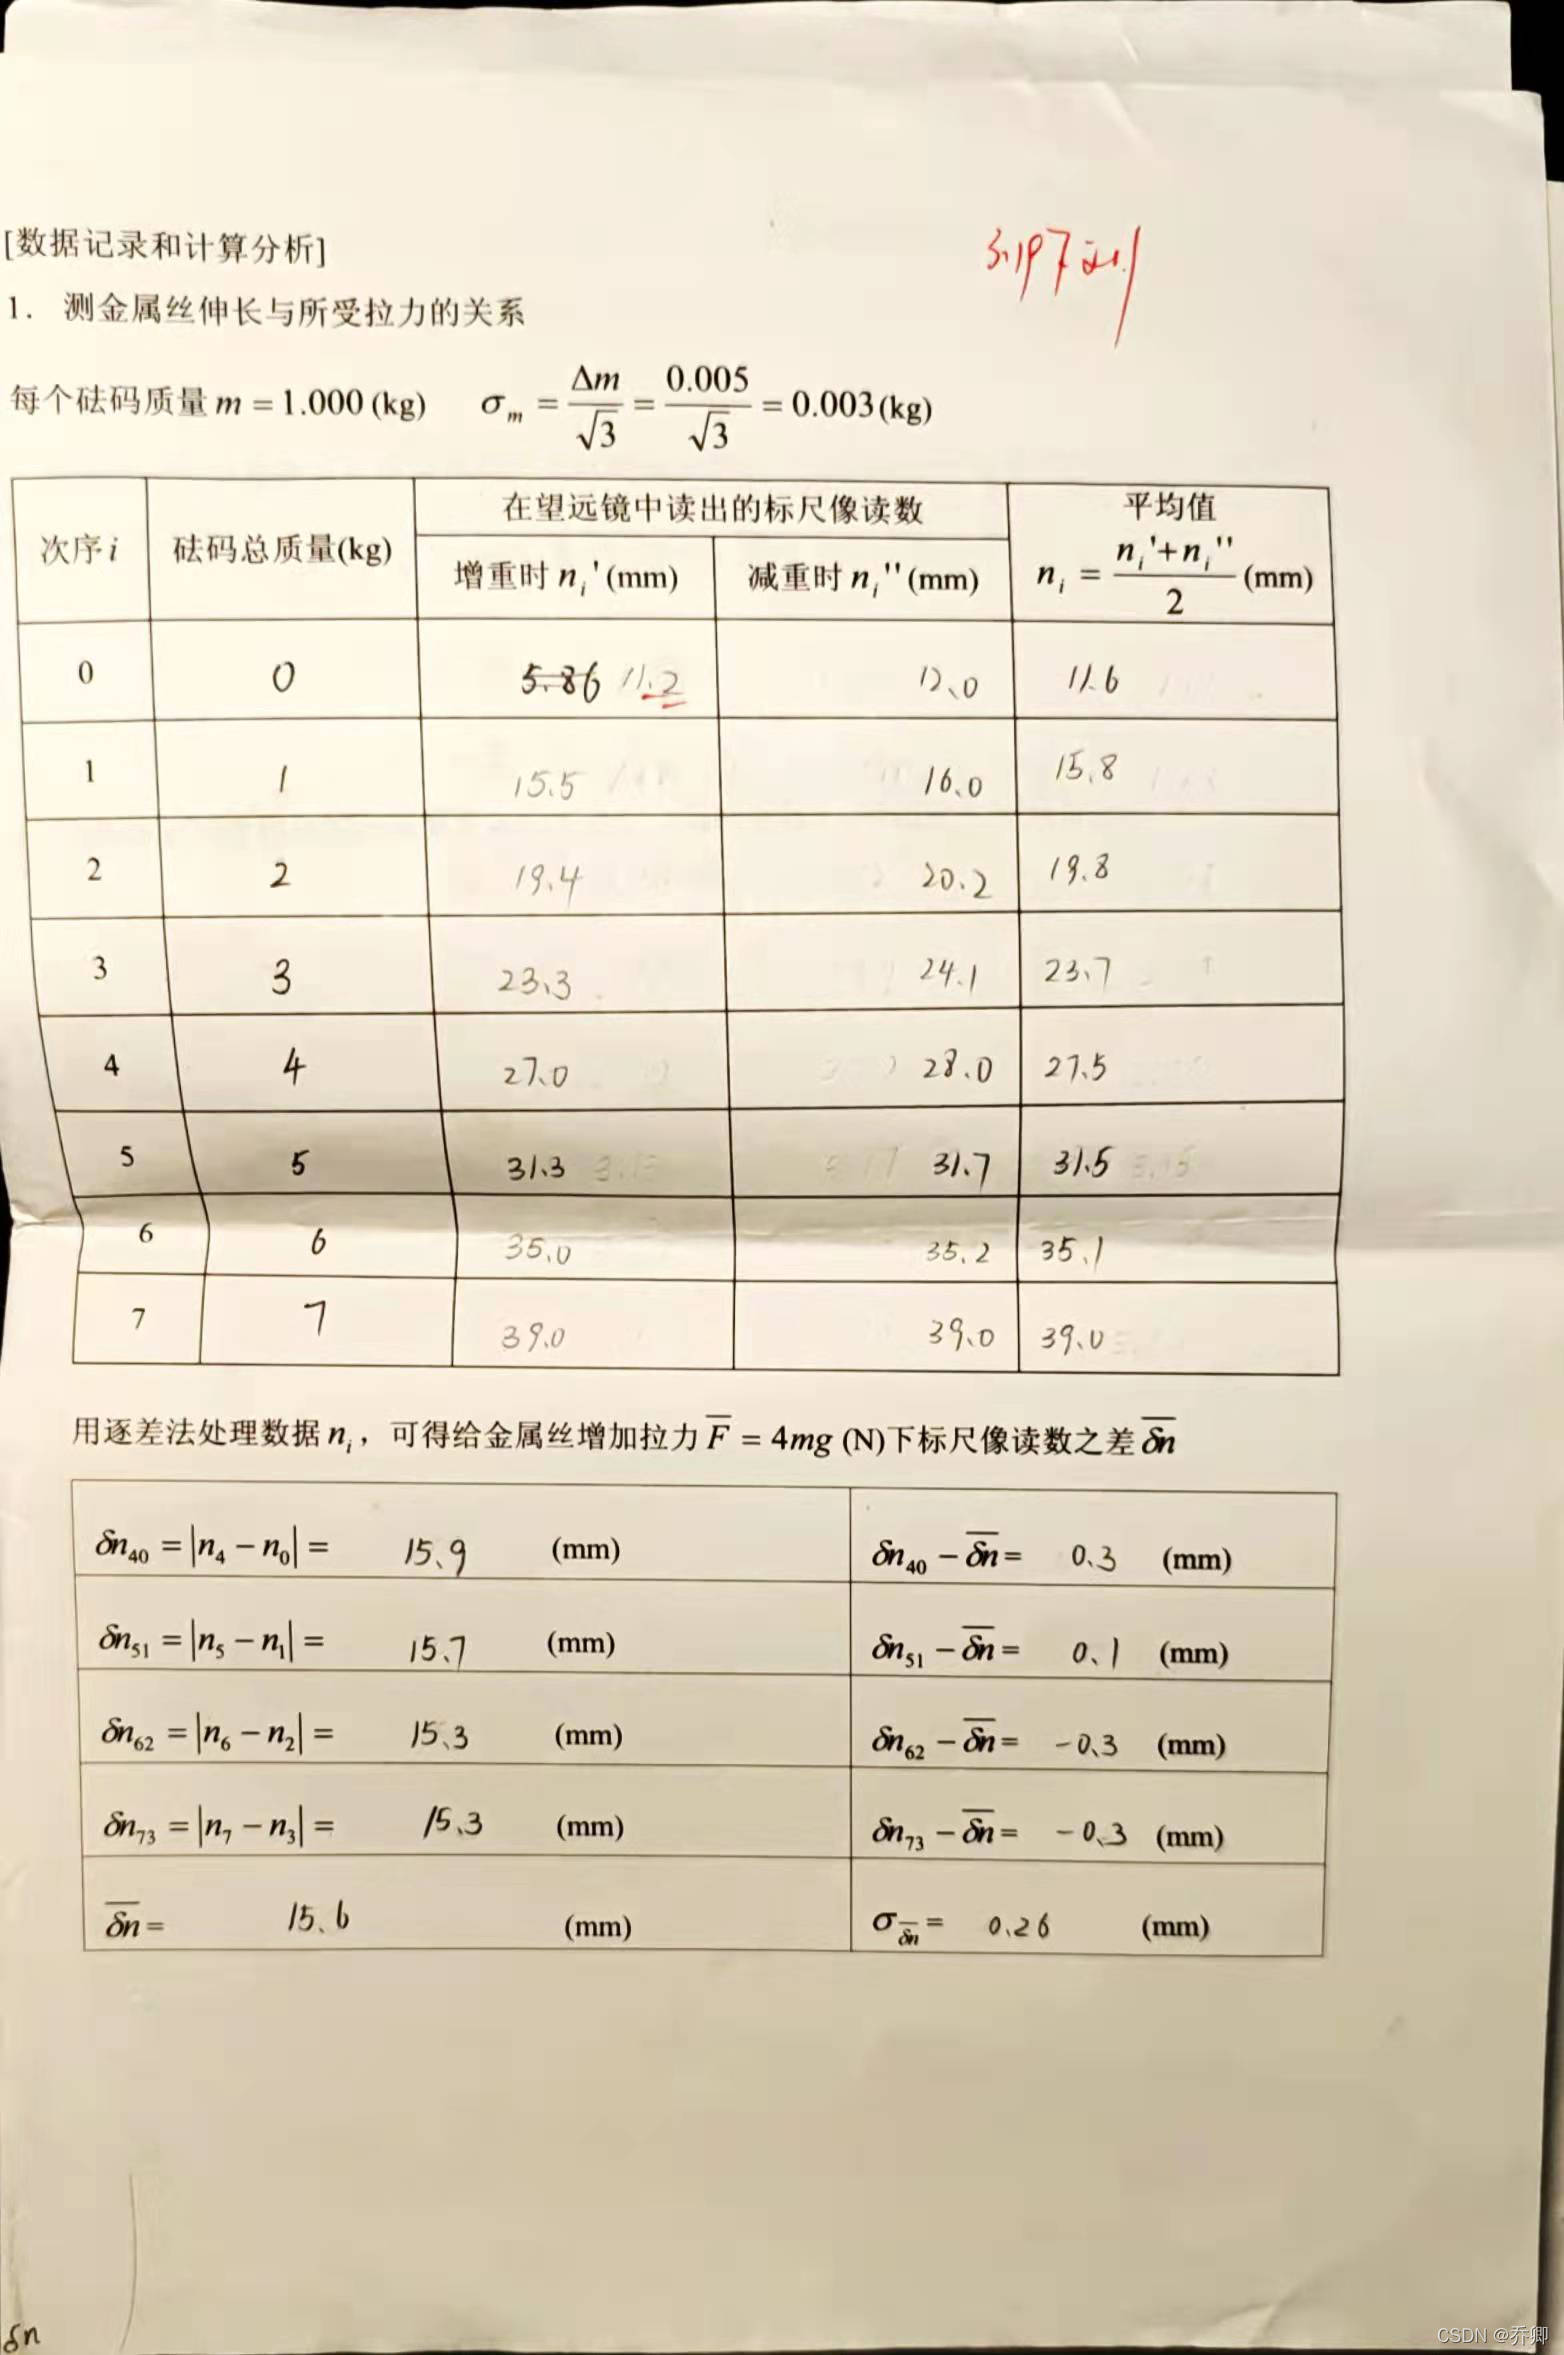 [数据记录和计算分析]
3.197
1. 测金属丝伸长与所受拉力的关系
每个砝码质量 m = 1.000 (kg) σm = Δm/√3 = 0.005/√3 = 0.003 (kg)
次序 i 砝码总质量(kg) 在望远镜中读出的标尺像读数 平均值
增重时 ni' (mm) 减重时 ni'' (mm) ni = (ni'+ni'')/2 (mm)
0 0 5.86 11.2 12.0 11.6
1 1 15.5 16.0 15.8
2 2 19.4 20.2 19.8
3 3 23.3 24.1 23.7
4 4 27.0 28.0 27.5
5 5 31.3 31.7 31.5
6 6 35.0 35.2 35.1
7 7 39.0 39.0 39.0
用逐差法处理数据 ni，可得给金属丝增加拉力 F̅ = 4mg (N)下标尺像读数之差 δn̅
δn40 = |n4 − n0| = 15.9 (mm) δn40 − δn̅ = 0.3 (mm)
δn51 = |n5 − n1| = 15.7 (mm) δn51 − δn̅ = 0.1 (mm)
δn62 = |n6 − n2| = 15.3 (mm) δn62 − δn̅ = -0.3 (mm)
δn73 = |n7 − n3| = 15.3 (mm) δn73 − δn̅ = -0.3 (mm)
δn̅ = 15.6 (mm) σδn̅ = 0.26 (mm)
δn
CSDN @乔卿